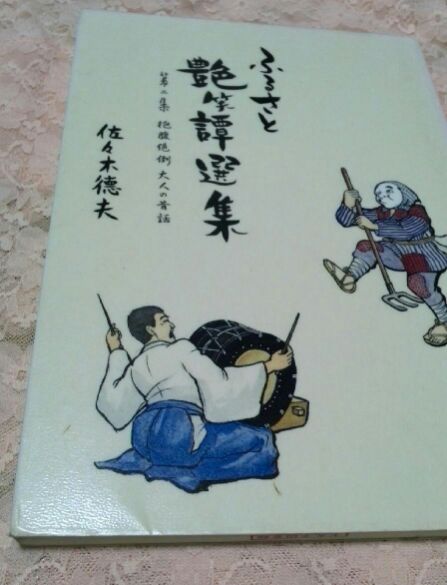 ふるさと
艶笑譚選集
第二集 抱腹絶倒 大人の昔話
佐々木徳夫